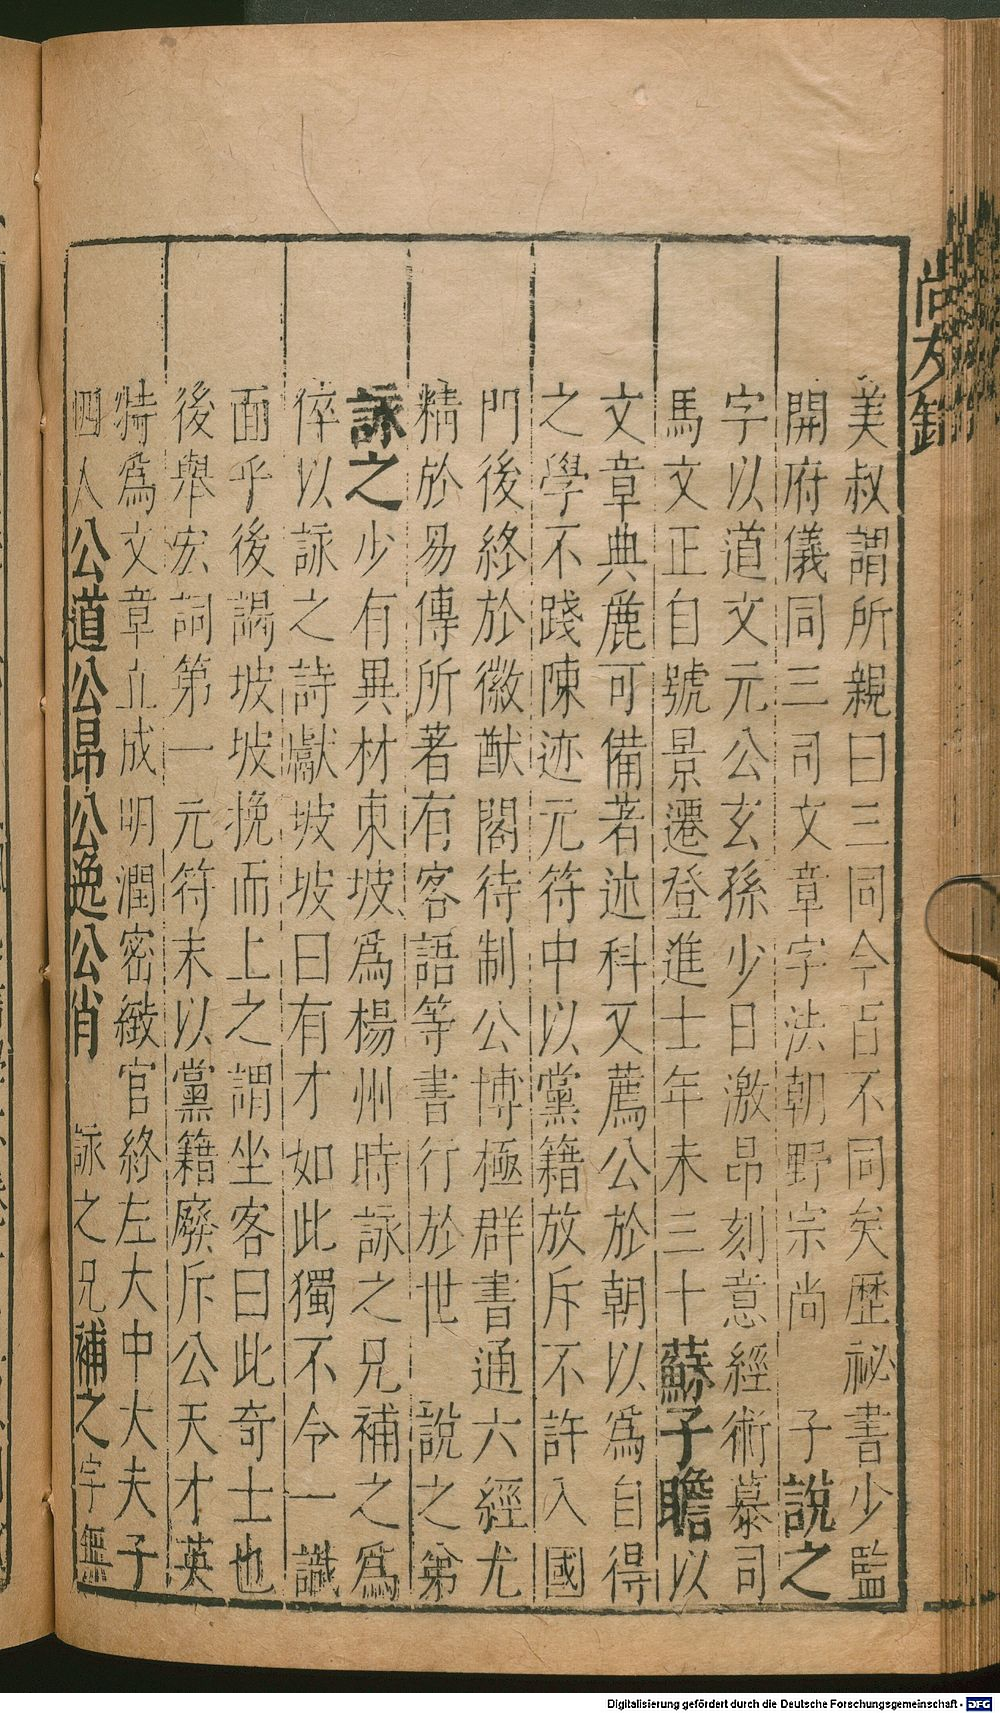 美叔謂所親曰三同今百不同矣歷祕書少監
開府儀同三司文章字法朝野宗尚　子說之
字以道文元公玄孫少日激昂刻意經術慕司
馬文正自號景遷登進士年未三十蘇子瞻以
文章典麗可備著述科又薦公於朝以為自得
之學不踐陳迹元符中以黨籍放斥不許入國
門後終於徽猷閣待制公博極群書通六經尤
精於易傳所著有客語等書行於世　說之弟
詠之少有異材東坡為楊州時詠之兄補之為
倅以詠之詩獻坡坡曰有才如此獨不令一識
面乎後謁坡坡挽而上之謂坐客曰此奇士也
後舉宏詞第一元符末以黨籍廢斥公天才英
特為文章立成明潤密緻官終左大中大夫子
四人公道公昂公逸公肖　詠之兄補之字無
Digitalisierung gefördert durch die Deutsche Forschungsgemeinschaft - DFG